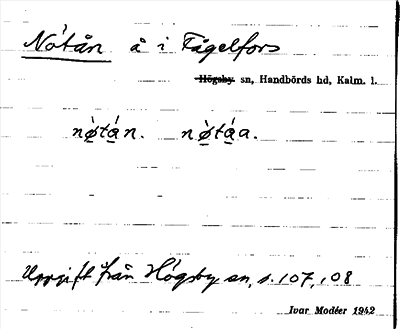 Nótån å i Fågelfors
Högsby sn, Handbörds hd, Kalm. l.
nø̀tá̱n. nø̀tá̱a.
Uppgift från Högsby sn, s. 107, 108
Ivar Modéer 1942